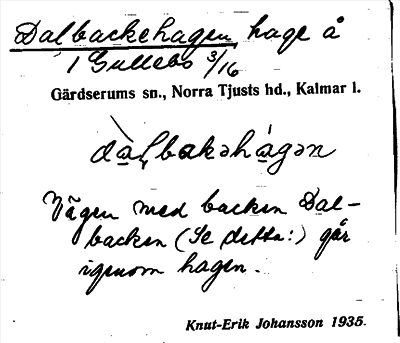 Dalbackehagen hage å
1 Gullebo 3/16
Gärdserums sn., Norra Tjusts hd., Kalmar l.
dàḷbakəhágən
Vägen med backen Dal-
backen (Se detta:) går
igenom hagen.
Knut-Erik Johansson 1935.